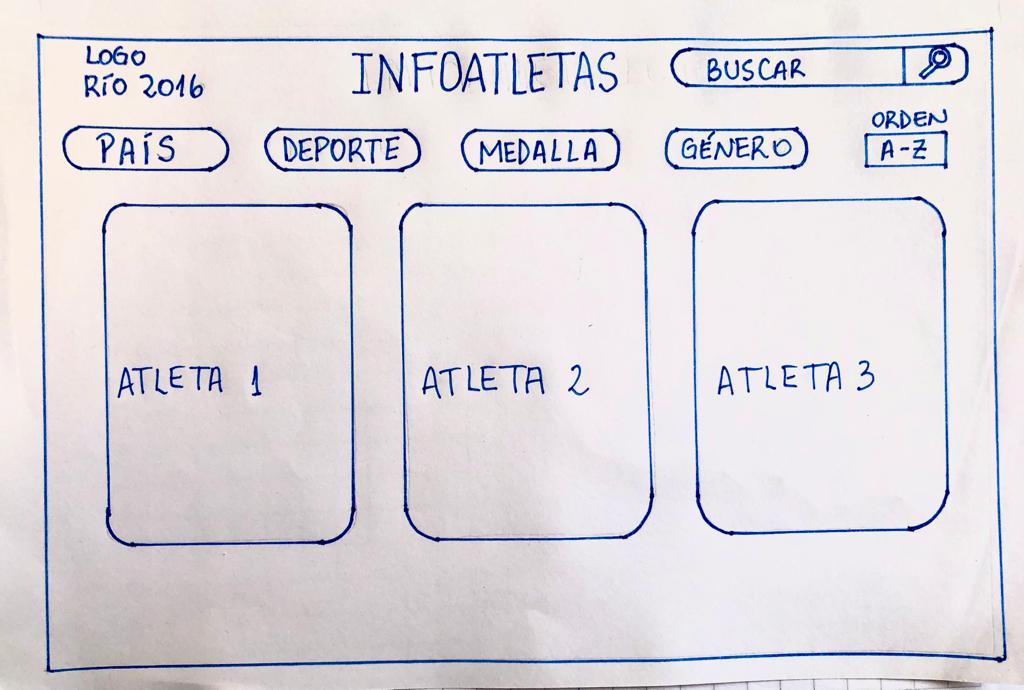 LOGO
RÍO 2016
INFOATLETAS
BUSCAR
PAÍS
DEPORTE
MEDALLA
GÉNERO
ORDEN
A-Z
ATLETA 1
ATLETA 2
ATLETA 3